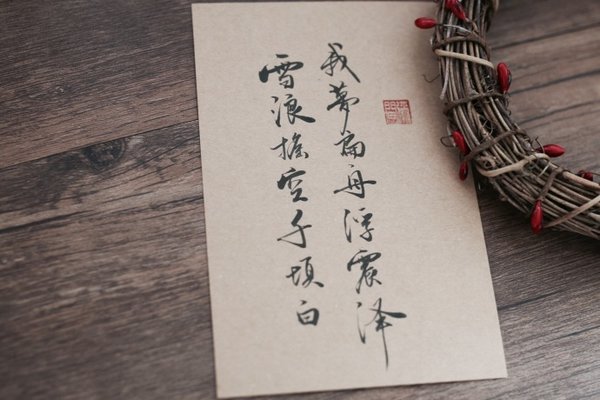 我梦扁舟浮震泽
雪浪摇空千顷白